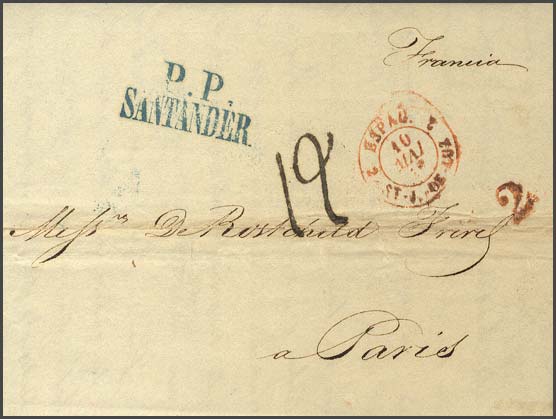 Francia
P. P.
SANTANDER.
2 ESPAG. 2
10
MAI
ST-J.-DE-LUZ
12
2
Mess.rs De Rostchild Freres
a Paris